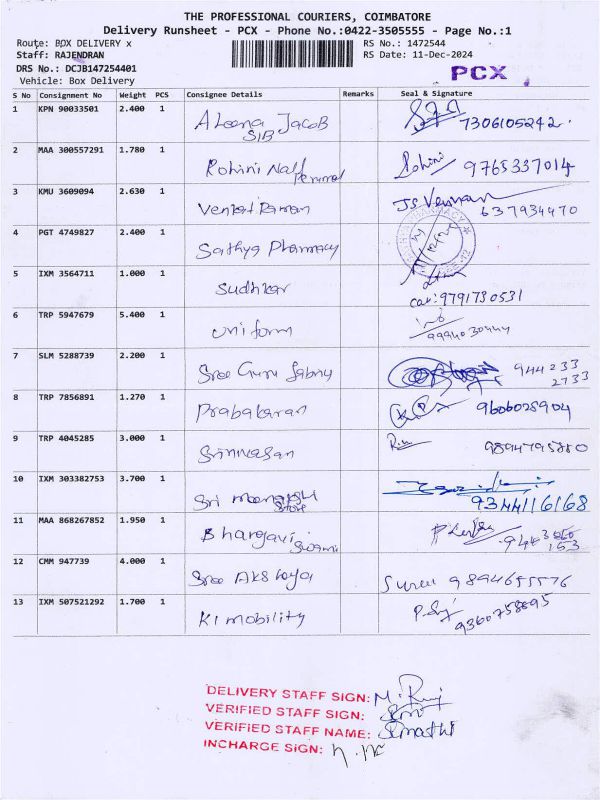 THE PROFESSIONAL COURIERS, COIMBATORE
Delivery Runsheet - PCX - Phone No.:0422-3505555 - Page No.:1
Route: BOX DELIVERY x RS No.: 1472544
Staff: RAJENDRAN RS Date: 11-Dec-2024
DRS No.: DCJB147254401
Vehicle: Box Delivery PCX
S No Consignment No Weight PCS Consignee Details Remarks Seal & Signature
1 KPN 90033501 2.400 1 Aleena Jacob 7306105242.
SIB
2 MAA 300557291 1.780 1 Rohini Rohini 9765337014
3 KMU 3609094 2.630 1 Venkat Raman JS
637934470
4 PGT 4749827 2.400 1 Sathya Pharmacy
5 IXM 3564711 1.000 1 Sudhkar
9791730531
6 TRP 5947679 5.400 1 Uniform
9994030444
7 SLM 5288739 2.200 1 Sree Guru 944 2 33
2733
8 TRP 7856891 1.270 1 Prabakaran 9606028904
9 TRP 4045285 3.000 1 Srinivasan
10 IXM 303382753 3.700 1 Sri Meenakshi
Store 9344116168
11 MAA 868267852 1.950 1 Bhargavi
Swami
12 CMM 947739 4.000 1 Sree Akshaya
13 IXM 507521292 1.700 1 KI mobility
DELIVERY STAFF SIGN:
VERIFIED STAFF SIGN:
VERIFIED STAFF NAME:
INCHARGE SIGN: